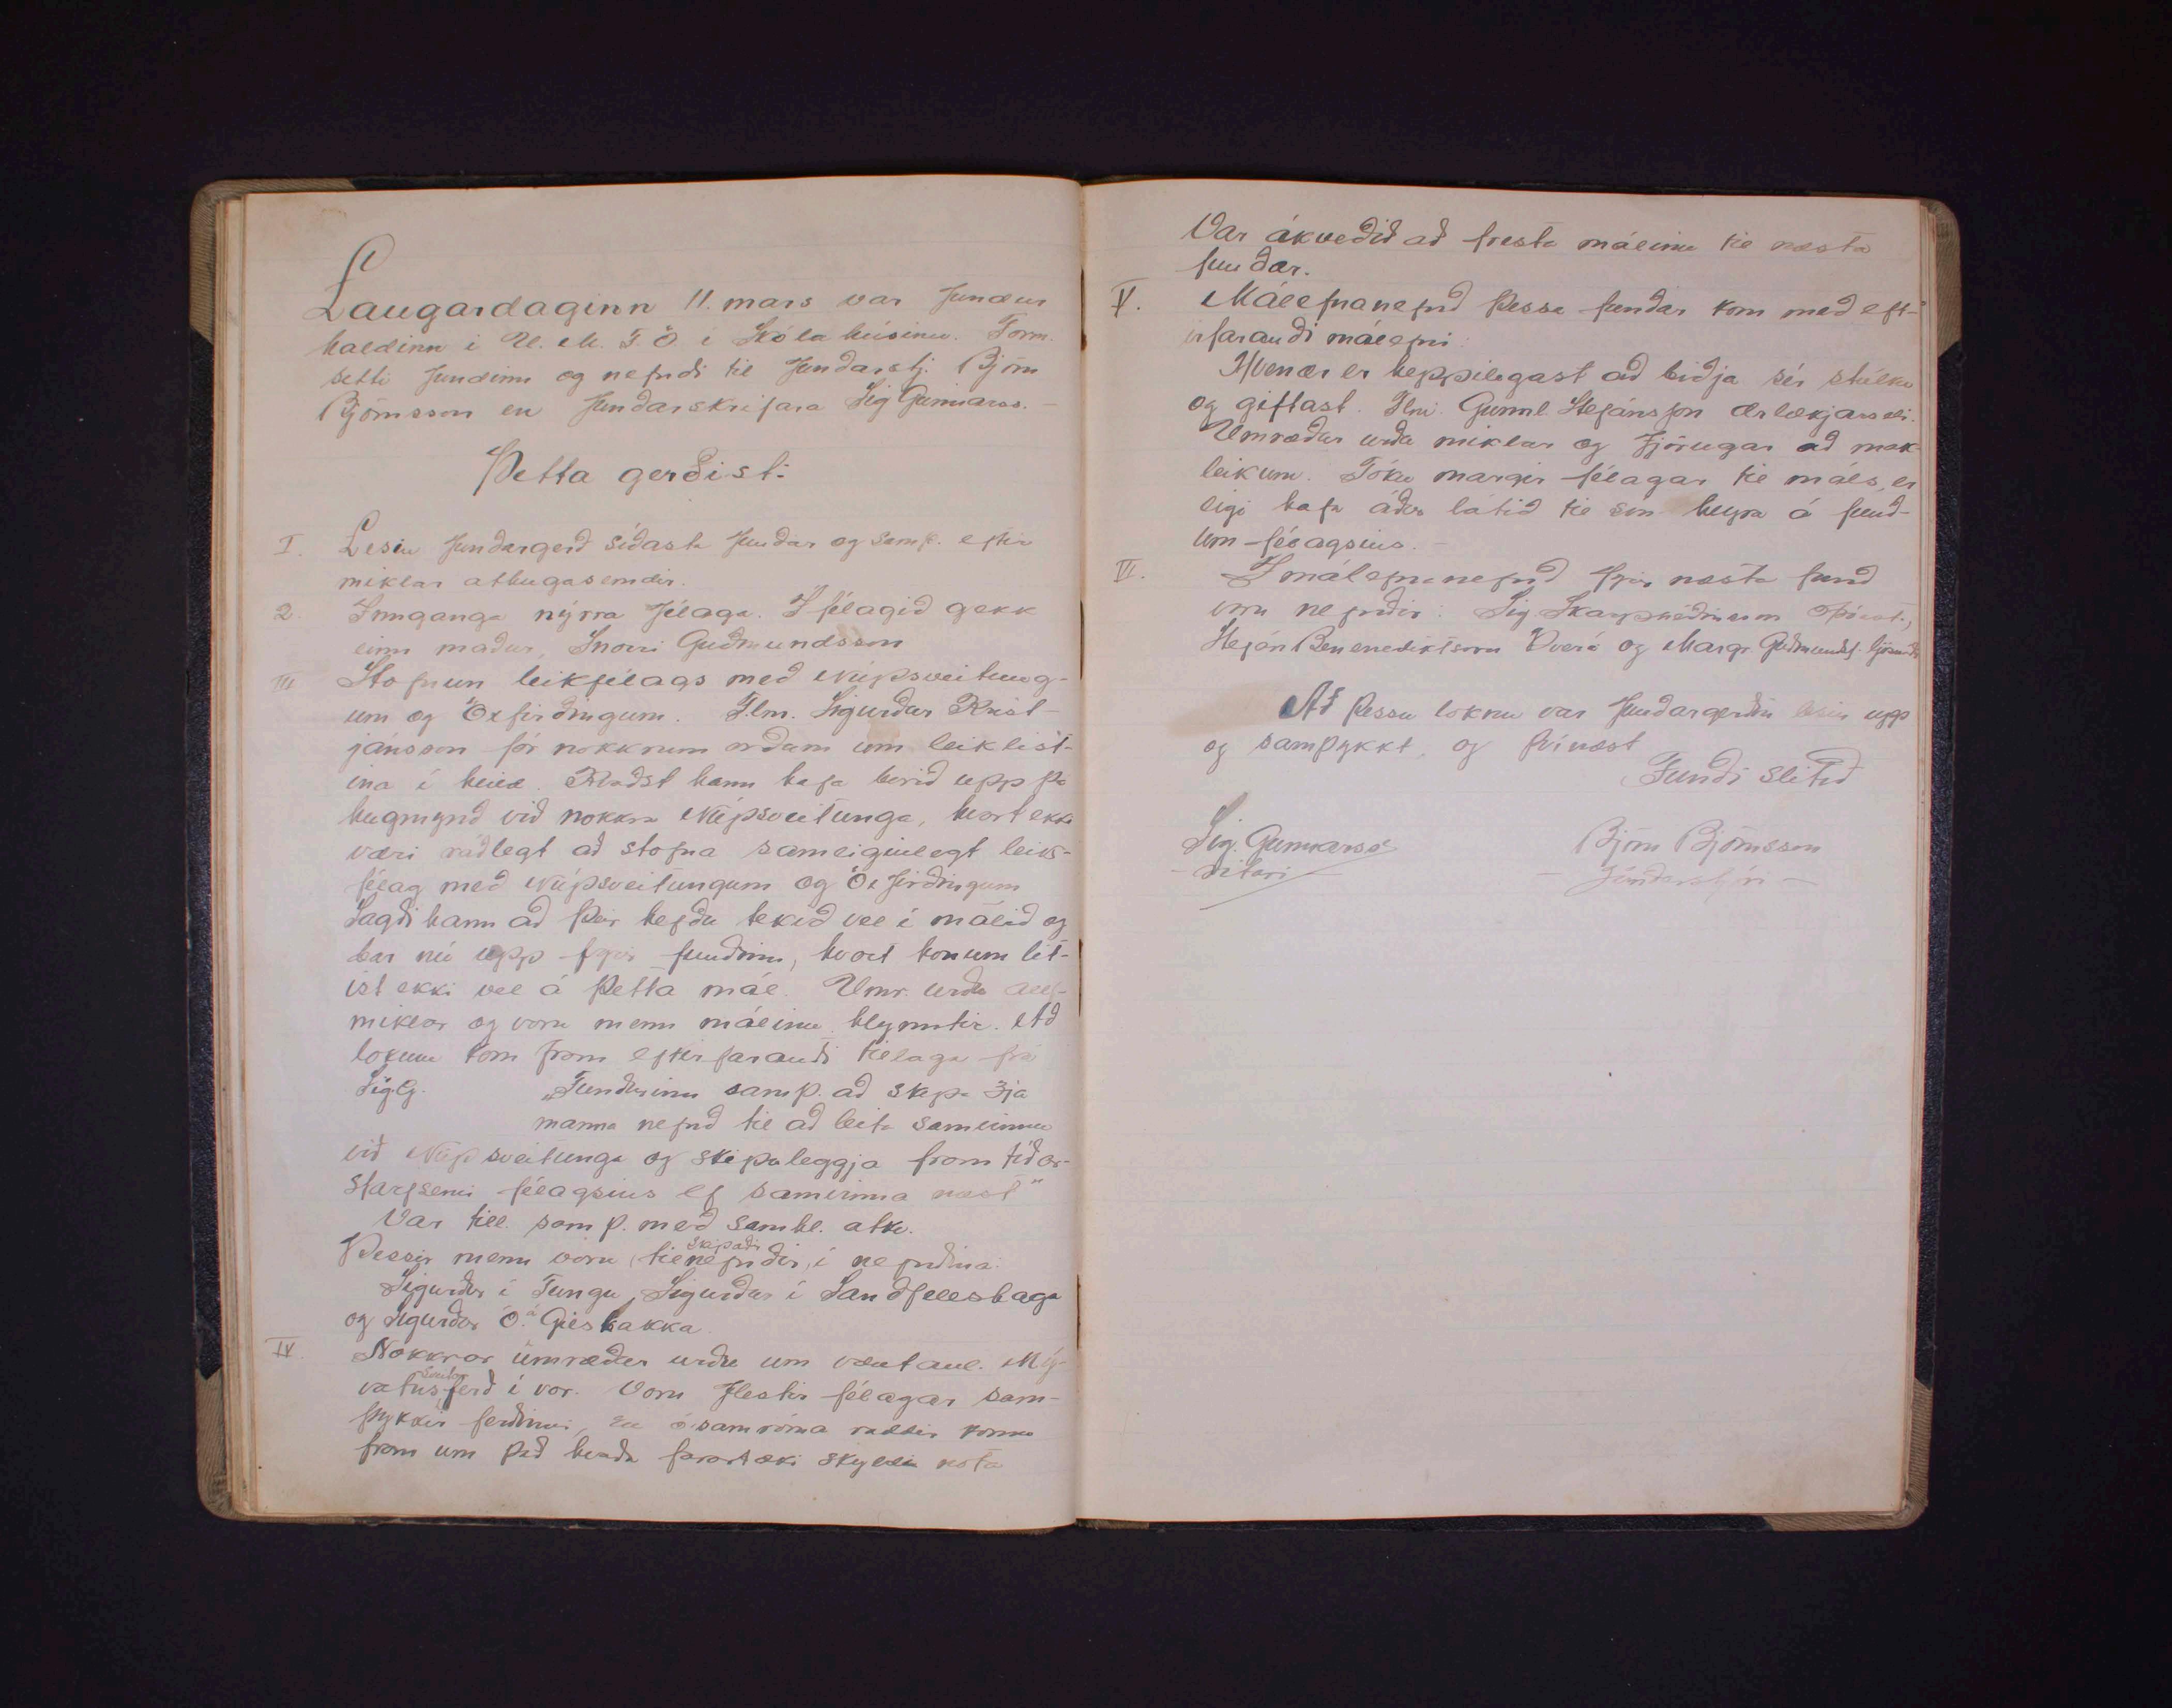 Laugardaginn 11. mars var fundur
haldinn í U. M. F. Ö. í Skólahúsinu. Form.
setti fundinn og nefndi til fundarstj. Björn
Björnsson en fundarskrifara Sig Gunnarss. -
Þetta gerðist:
I. Lesin fundargerð síðasta fundar og samþ. eftir
miklar athugasemdir.
2. Innganga nýrra félaga. Í félagið gekk
einn maður, Snorri Guðmundsson
III Stofnun leikfélags með Núpsveitung-
um og Öxfirðingum. F.lm. Sigurður Krist-
jánsson fór nokkrum orðum um leiklist-
ina í heild. Kvaðst hann hafa borið upp þá
hugmynd við nokkra Núpsveitunga, hvort ekki
væri ráðlegt að stofna sameiginlegt leik-
félag með Núpsveitungum og Öxfirðingum
Sagði hann að þeir hefðu tekið vel í málið og
bar nú upp fyrir fundinn, hvort honum lit-
ist ekki vel á þetta mál. Umr. urðu all-
miklar og voru menn málinu hlynntir. Að
lokum kom fram eftirfarandi tillaga frá
Sig.G. „Fundurinn samþ. að skipa 3ja
manna nefnd til að leita samvinnu
við Núpsveitunga og skipuleggja framtíðar-
starfsemi félagsins ef samvinna næst"
Var till. samþ. með samhl. atkv.
Þessir menn voru tilnefndir, skipaðir í nefndina:
Sigurður í Tungu, Sigurður í Sandfellshaga
og Sigurður Ö. á Gilsbakka
IV. Nokkrar umræður urðu um væntanl. Mý-
vatnssveitarferð í vor. Voru flestir félagar sam-
þykkir ferðinni, en ósamróma raddir komu
fram um það hvaða farartæki skyldi nota
Var ákveðið að fresta málinu til næsta
fundar.
V. Málefnanefnd þessa fundar kom með eft-
irfarandi málefni:
Hvenær er heppilegast að biðja sér stúlku
og giftast. Flm. Gunnl. Stefánsson Ærlækjarseli.
Umræður urðu miklar og fjörugar að mak-
leikum. Tóku margir félagar til máls, er
eigi hafa áður látið til sín heyra á fund-
um félagsins. -
VI. Í málefnanefnd fyrir næsta fund
voru nefndir: Sig Skarphéðinsson
Stefán Benenediktsson Þverá og Margr Guðmundsd.
Að þessu loknu var fundargerðin lesin upp
og samþykkt, og þvínæst
Fundi slitið
Sig. Gunnarss
- ritari -
Björn Björnsson
- fundarstjóri -